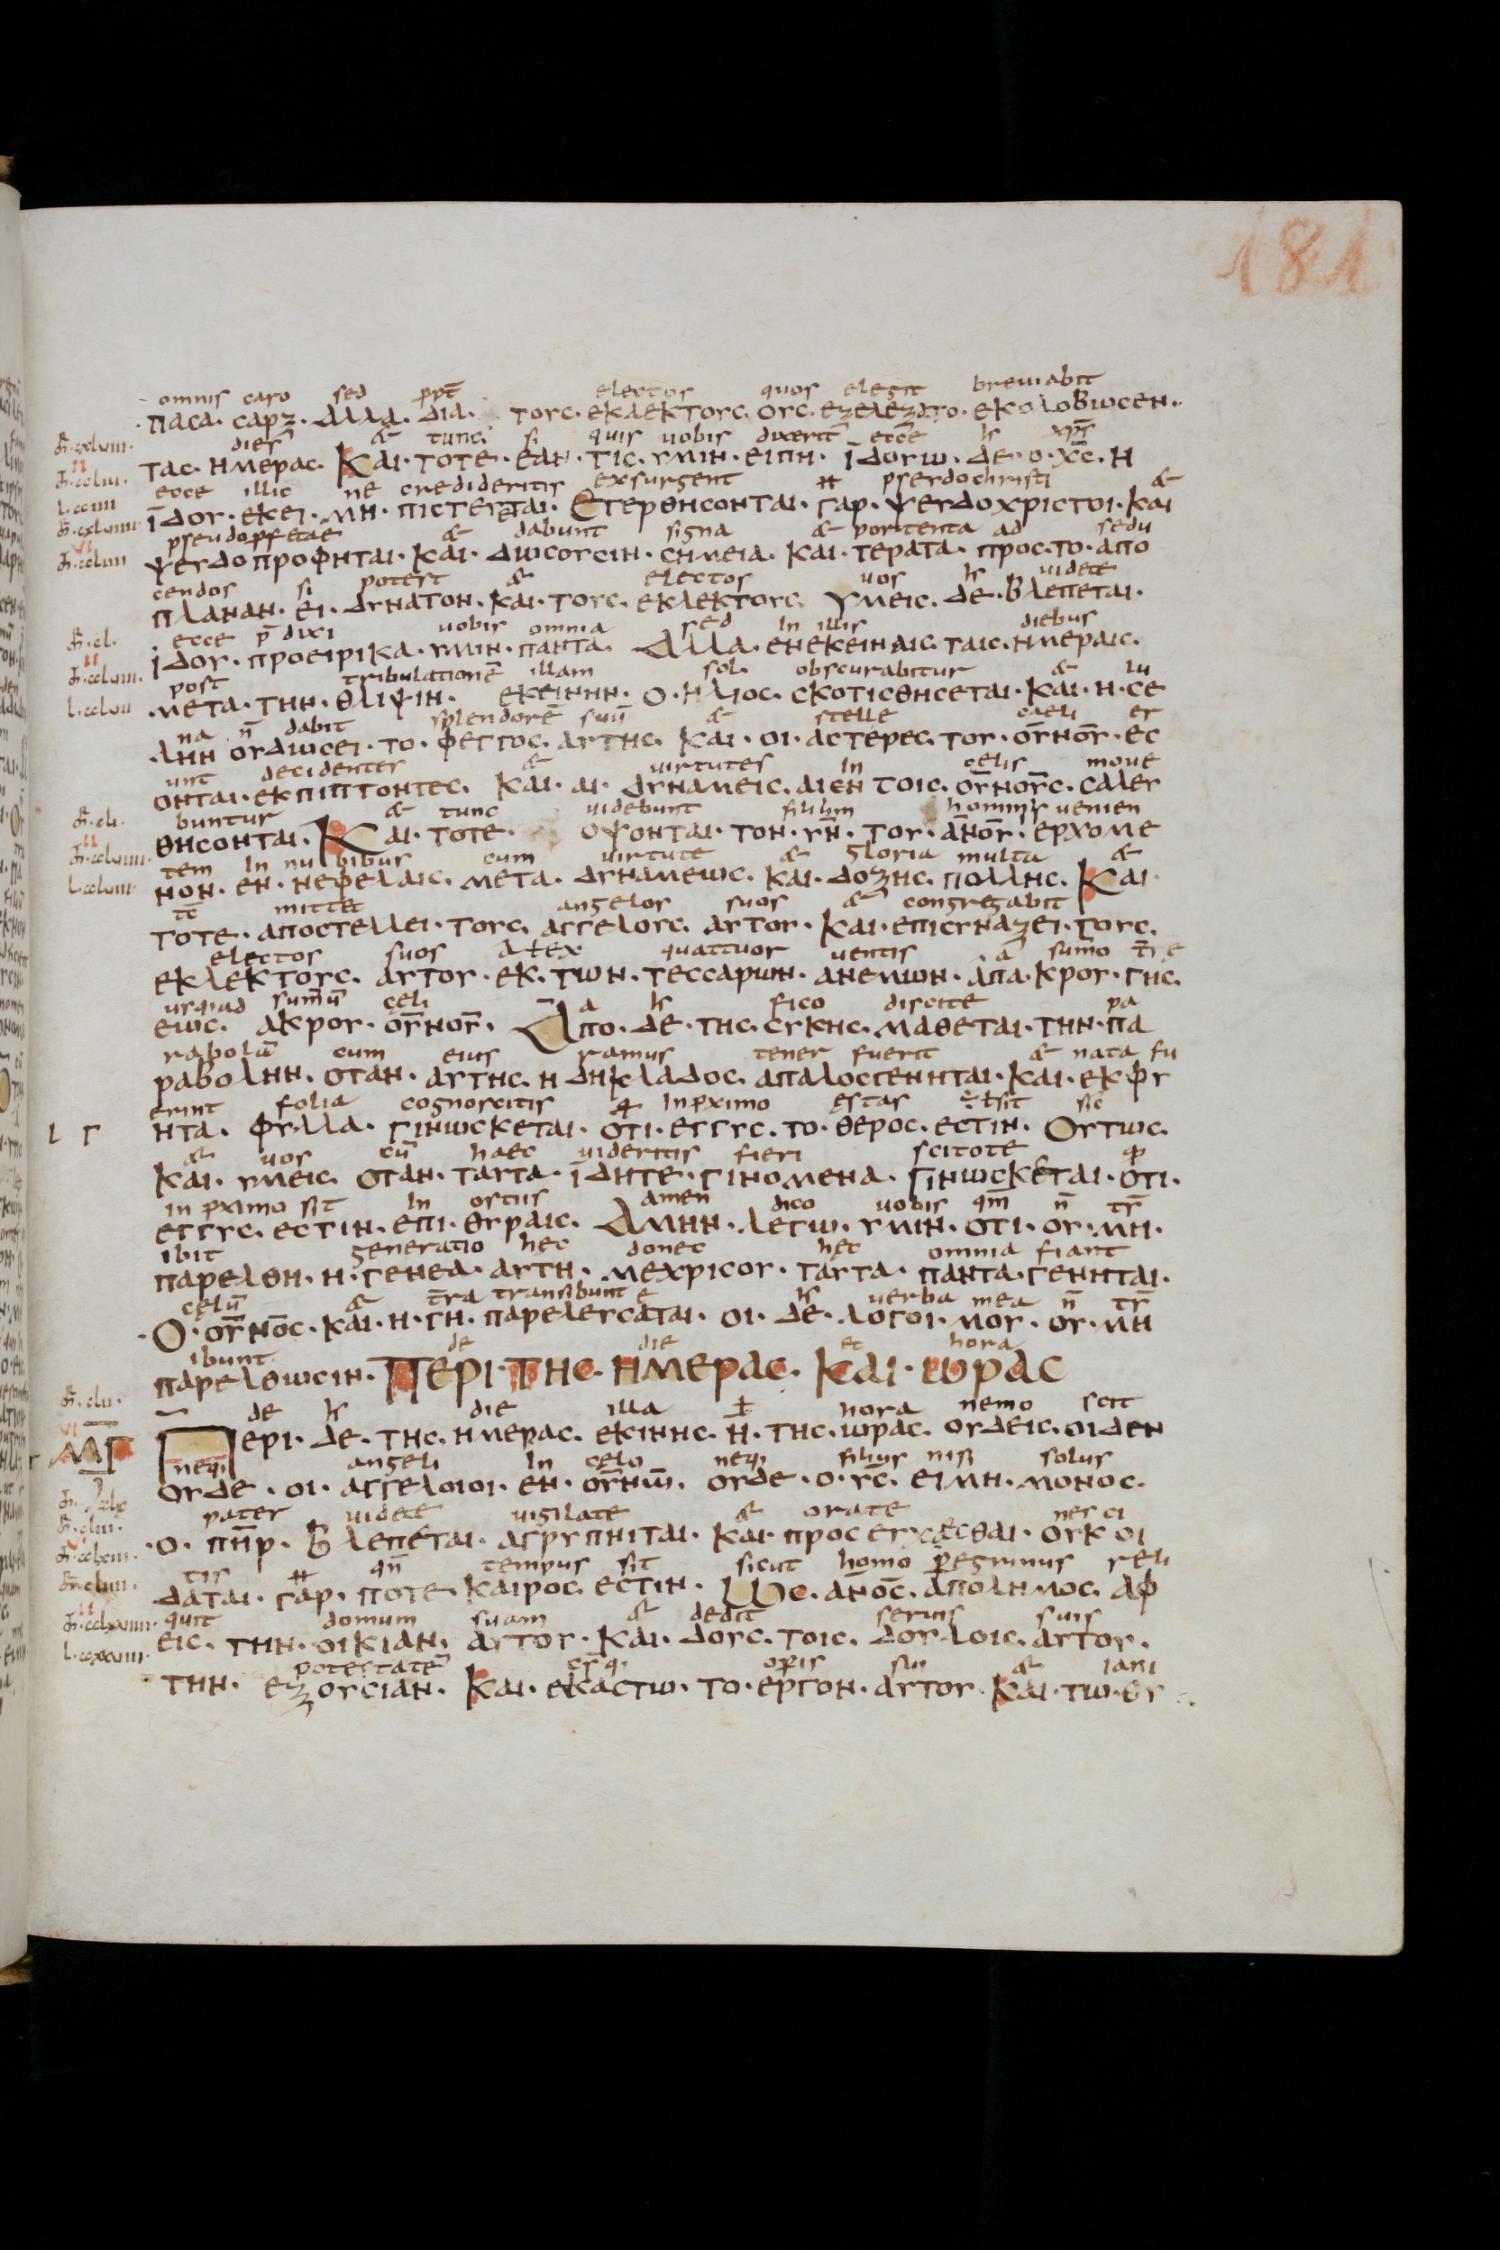 181
omnis caro sed ꝓpt̄ electos quos elegit breviabit
πασα· σαρξ· αλλα· δια· τους· εκλεκτους· ους· εξελεξατο· εκολοβωσεν·
dies & tunc si quis uobis dixerit ecce xp̄s
τας· ημερας· Και· τοτε· εαν· τις· υμιν· ειπη· ϊδουω· δε· ο· χ̄ς· η
ecce illic ne credideritis exsurgent pseudochristi &
ϊδου· εκει· μη· πιστευεται· Εγερθησονται· γαρ· ψευδοχριστοι· και
pseudopfetae & dabunt signa & portenta ad sedu
ψευδοπροφηται· και· δωσουσιν· σημεια· και· τερατα· προς· το· απο
cendos si potest & electos uos videte
πλαναν· ει· δυνατον· και· τους· εκλεκτους· Υμεις· δε· βλεπεται·
ecce p̄dixi uobis omnia sed in illis diebus
ϊδου· προειρικα· υμιν· παντα· Αλλα· ενεκειναις· ταις· ημεραις·
post tribulationē illam sol obscurabitur & lu
μετα· την· θλιψιν· εκεινην· ο· ηλιος· σκοτισθησεται· και· η· σε
na n̄ dabit splendorē suū & stelle caeli er
ληη ουδωσει· το· φεγγος· αυτης· και· οι· αστερες· του· ουν̄οῡ· εσ
unt decidentes & uirtutes in celis moue
ονται· εκπιπτοντες· και· αι· δυναμεις· αιεν τοις· ουν̄οῡς· σαλευ
buntur & tunc uidebunt filium hominis uenien
θησονται· Και· τοτε· οψονται· τον· υν̄· του· ανο̄υ· ερχομε
tem in nubibus cum uirtute & gloria multa &
νον· εν· νεφελαις· μετα· δυναμεως· και· δοξης· πολλης· Και·
tc̄ mittet angelos suos & congregabit
τοτε· αποστελλει· τους· αγγελους· αυτου· και· επισυναξει· τους·
electos suos a ł ex quattuor uentis a sumo t̄re
εκλεκτους· αυτου· εκ· των· τεσσαρων· ανεμων· απα· κρου· γης·
usq; ad sumū celi
εως· ακρου· ουν̄οῡ·
a fico discite pa
Απο· δε· της· συκης· μαθεται· την· πα
rabolā cum eius ramus tener fuerit & nata fu
ραβολην· οταν· αυτης· η δηκλαδος· απαλοσγενηται· και· εκφυ
erint folia cognoscitis in ꝓximo estas sit sic
ητα· φυλλα· γινωσκεται· οτι· εγγυς· το· θερος· εστιν· Ουτως·
& uos cū haec uideritis fieri scitote
και· υμεις· οταν· ταυτα· ϊδητε· γινομενα· γινωσκεται· οτι·
in ꝓximo sit in ostiis amen dico uobis qm̄ n̄ tr̄
εγγυς· εστιν· επι· θυραις· Αμην· λεγω· υμιν· οτι· ου· μη·
ibit generatio hec donec hec omnia fiant
παρελθη· η· γενεα· αυτη· μεχρισου· ταυτα· παντα· γενηται·
celū & t̄ra transibunt uerba mea n̄ tr̄
Ο· ουν̄ο̄ς· και· η· γη· παρελευσαται· οι· δε· λογοι· μου· ου· μη
ibunt de die et hora
παρελθωσιν· Περι· της· ημερας· και· ωρας
de die illa ł hora nemo scit
Περι· δε· της· ημερας· εκινης· η· της· ωρας· ουδεις· οιδεν
neq; angeli in celo neq; filius nisi solus
ουδε· οι· αγγελοιοι· εν· ουν̄ω̄· ουδε· ο· υς̄· ειμη· μονος·
pater uidete uigilate & orate nesci
ο· πηρ̄· Βλεπεται· αγρυπνιται· και· προσευχεσθαι· ουκ οι
tis qn̄ tempus sit sicut homo peregrinus reli
δαται· γαρ· ποτε· καιρος· εστιν· Ως· ανο̄ς· αποδημος· αφ
quit domum suam & dedit seruis suis
εις· την· οικιαν· αυτου· και· δους· τοις· δουλοις· αυτου·
potestatē & iani
την· εξουσιαν· Και· εκαστω· το· εργον· αυτου· και· τω· θυ